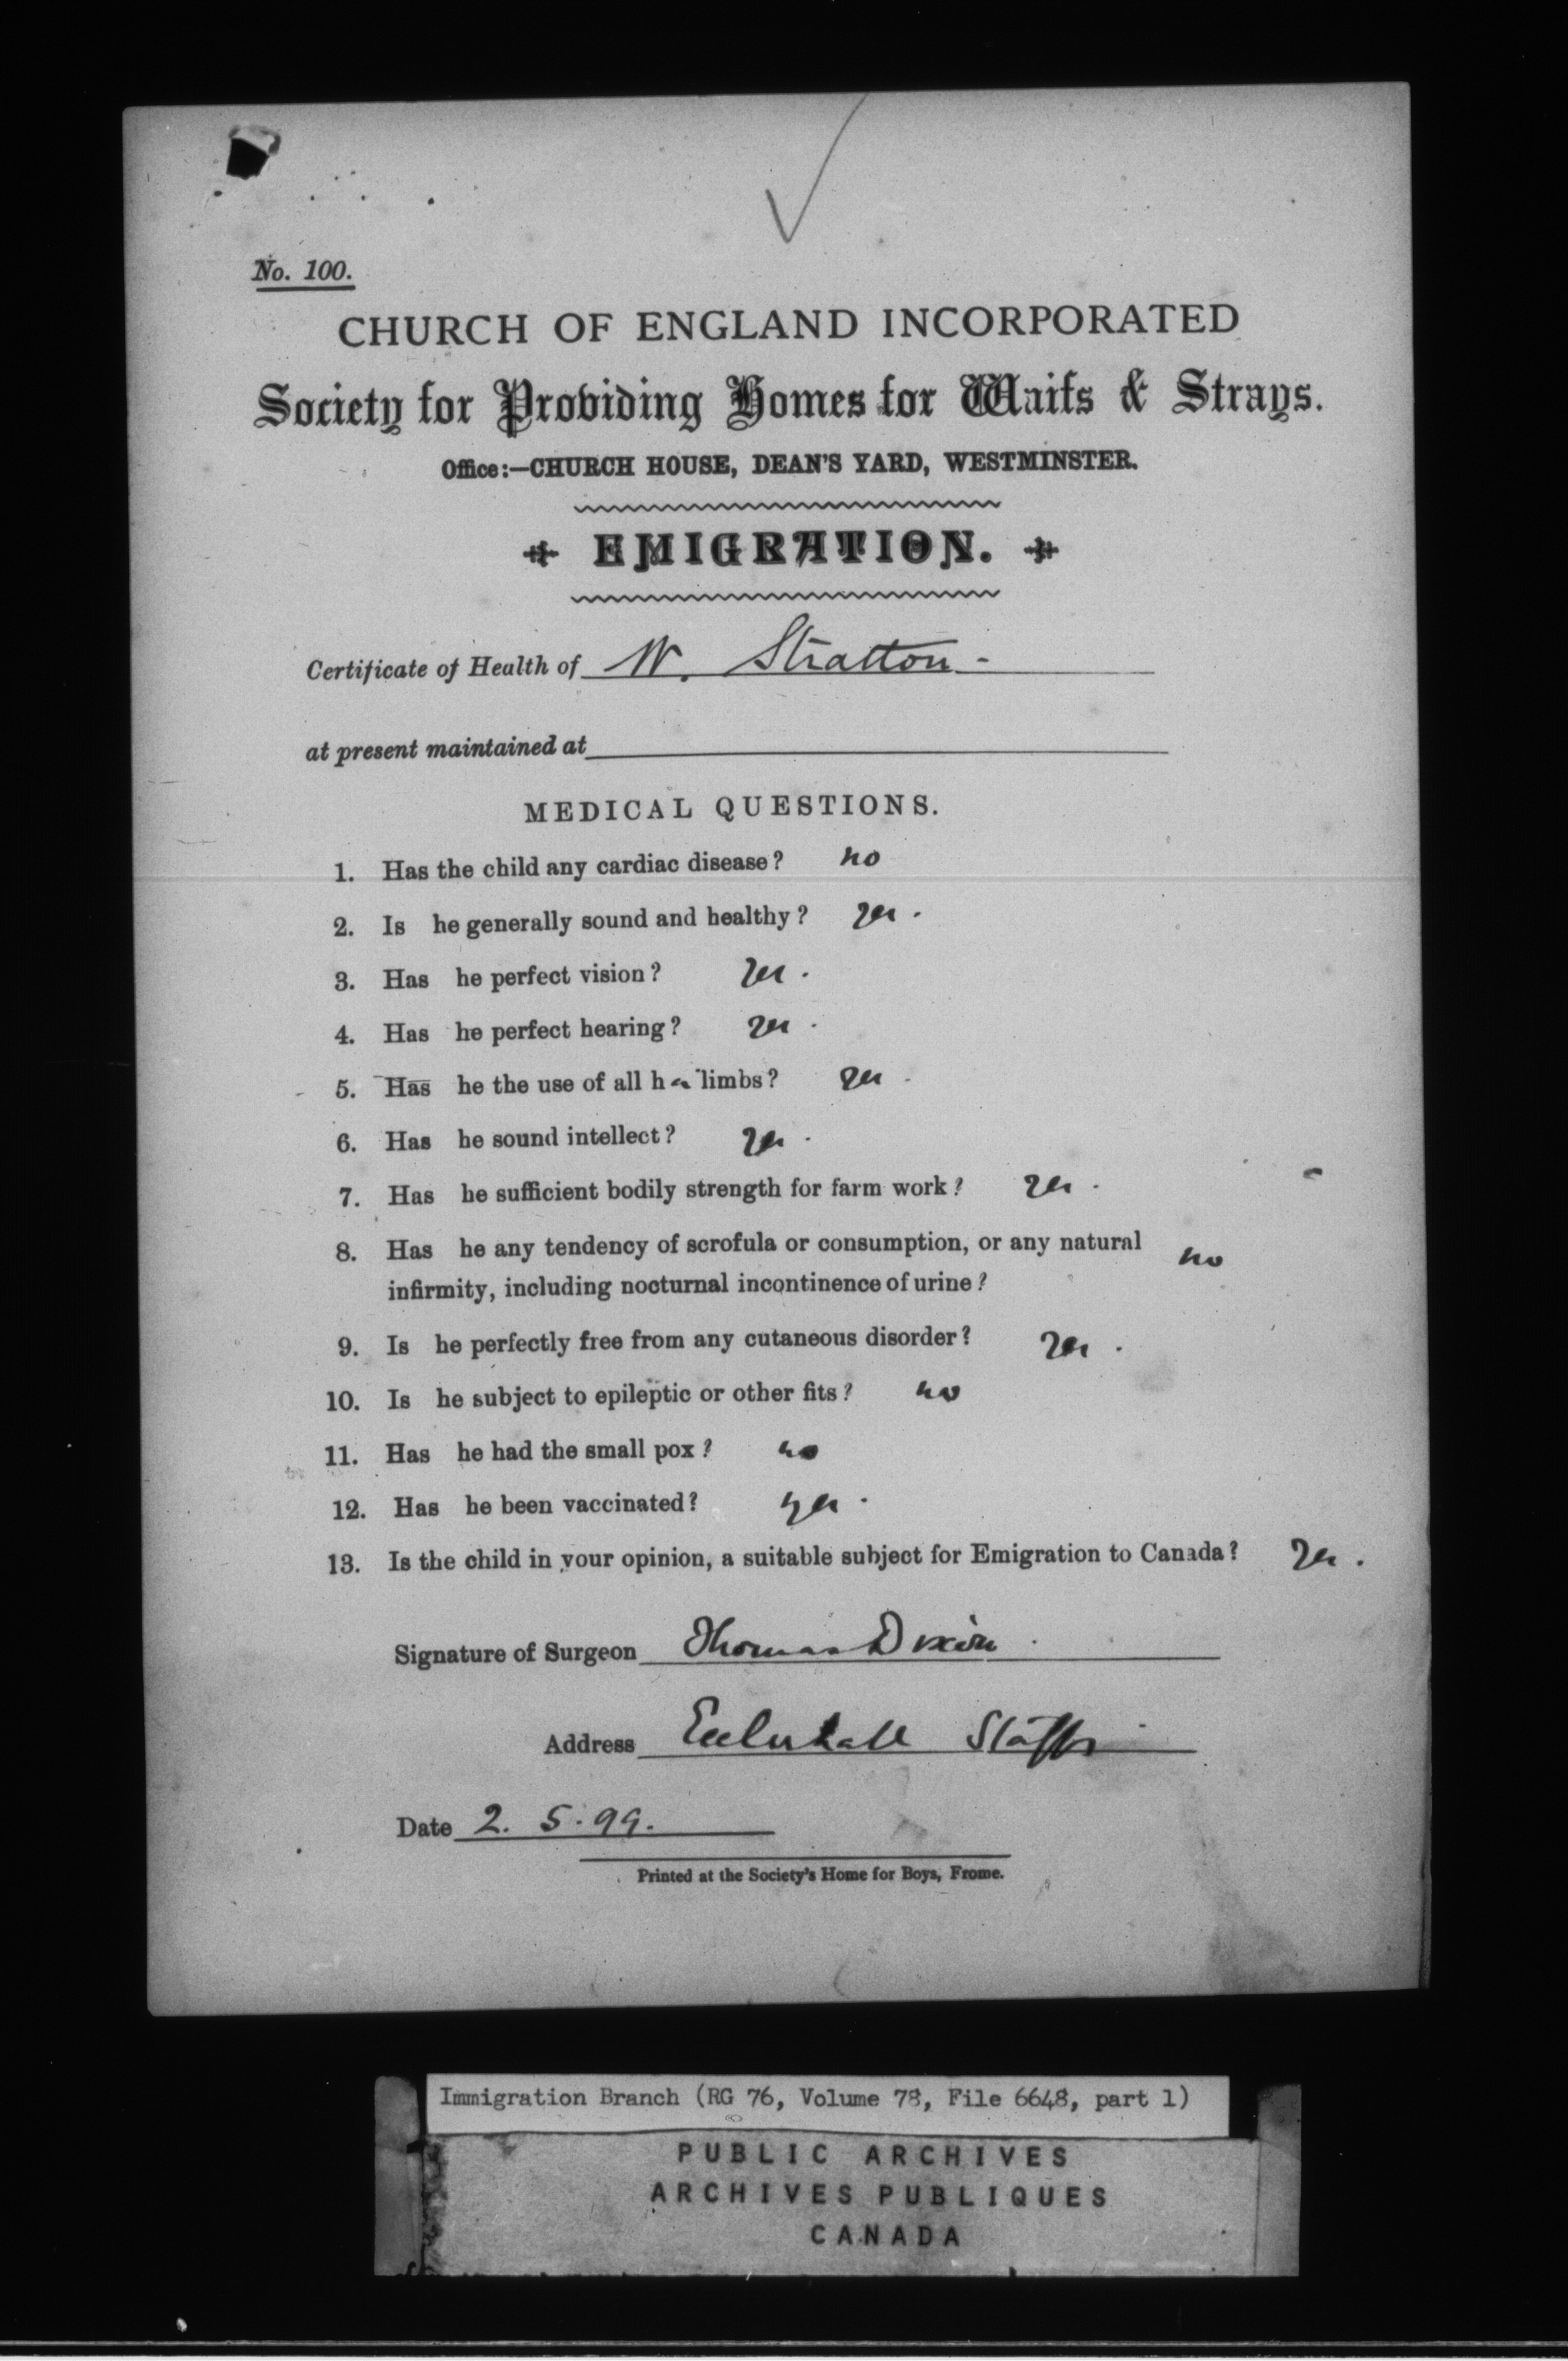 No. 100.
CHURCH OF ENGLAND INCORPORATED
Society for Providing Homes for Waifs & Strays.
Office:—CHURCH HOUSE, DEAN'S YARD, WESTMINSTER.
EMIGRATION.
Certificate of Health of W. Stratton -
at present maintained at
MEDICAL QUESTIONS.
1. Has the child any cardiac disease? no
2. Is he generally sound and healthy? yes.
3. Has he perfect vision? yes.
4. Has he perfect hearing? yes.
5. Has he the use of all his limbs? yes.
6. Has he sound intellect? yes.
7. Has he sufficient bodily strength for farm work? yes.
8. Has he any tendency of scrofula or consumption, or any natural no
infirmity, including nocturnal incontinence of urine?
9. Is he perfectly free from any cutaneous disorder? yes.
10. Is he subject to epileptic or other fits? no
11. Has he had the small pox? no
12. Has he been vaccinated? yes.
13. Is the child in your opinion, a suitable subject for Emigration to Canada? yes.
Signature of Surgeon Thomas Dixon
Address Eccleshall Staffs
Date 2. 5. 99.
Printed at the Society's Home for Boys, Frome.
Immigration Branch (RG 76, Volume 78, File 6648, part 1)
PUBLIC ARCHIVES
ARCHIVES PUBLIQUES
CANADA